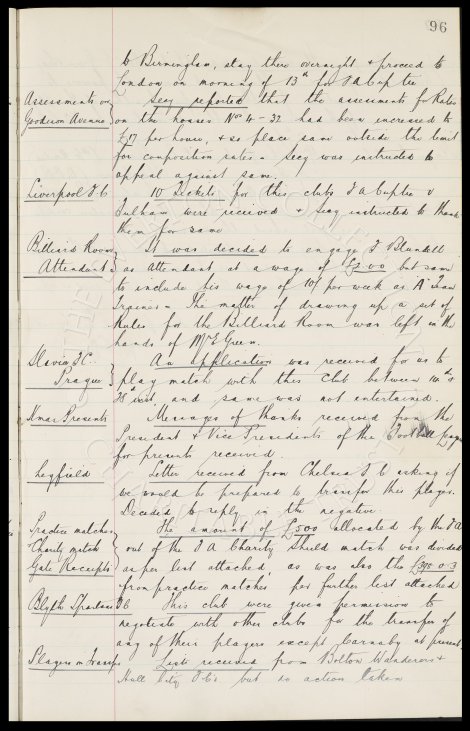 96
to Birmingham, stay there overnight & proceed to
London on morning of 13th for F A Cup tie
Assessments on Goodison Avenue
Secy reported that the assessments for Rates
on the houses Nos 4-32 had been increased to
£17 per house, & so place same outside the limit
for composition rates - Secy was instructed to
appeal against same.
Liverpool F. C
10 Tickets for this clubs F A Cup tie v
Fulham were received & Secy instructed to thank
them for same
Billiard Room Attendant
It was decided to engage J Blundell
as attendant at a wage of £2.0.0 but same
to include his wage of 10/ per week as "A" Team
Trainer - The matter of drawing up a set of
Rules for the Billiard Room was left in the
hands of Mr E Green.
Slavia F C. Prague
An application was received for us to
play match with this Club between 14th &
inst, and same was not entertained.
Xmas Presents
Messages of thanks received from the
President & Vice Presidents of the Football League
for presents received.
Legfield
Letter received from Chelsea F C asking if
we would be prepared to transfer this player.
Decided to reply in the negative.
Practice matches Charity match Gate Receipts
The amount of £500 allocated by the F A
out of the F A Charity Shield match was divided
as per list attached, as was also the
from practice matches per further list attached
Blyth Spartans F C
This club were given permission to
negotiate with other clubs for the transfer of
any of their players except Carnaby at present
Players on Transfer
Lists received from Bolton Wanderers &
Hull City F. C's but no action taken